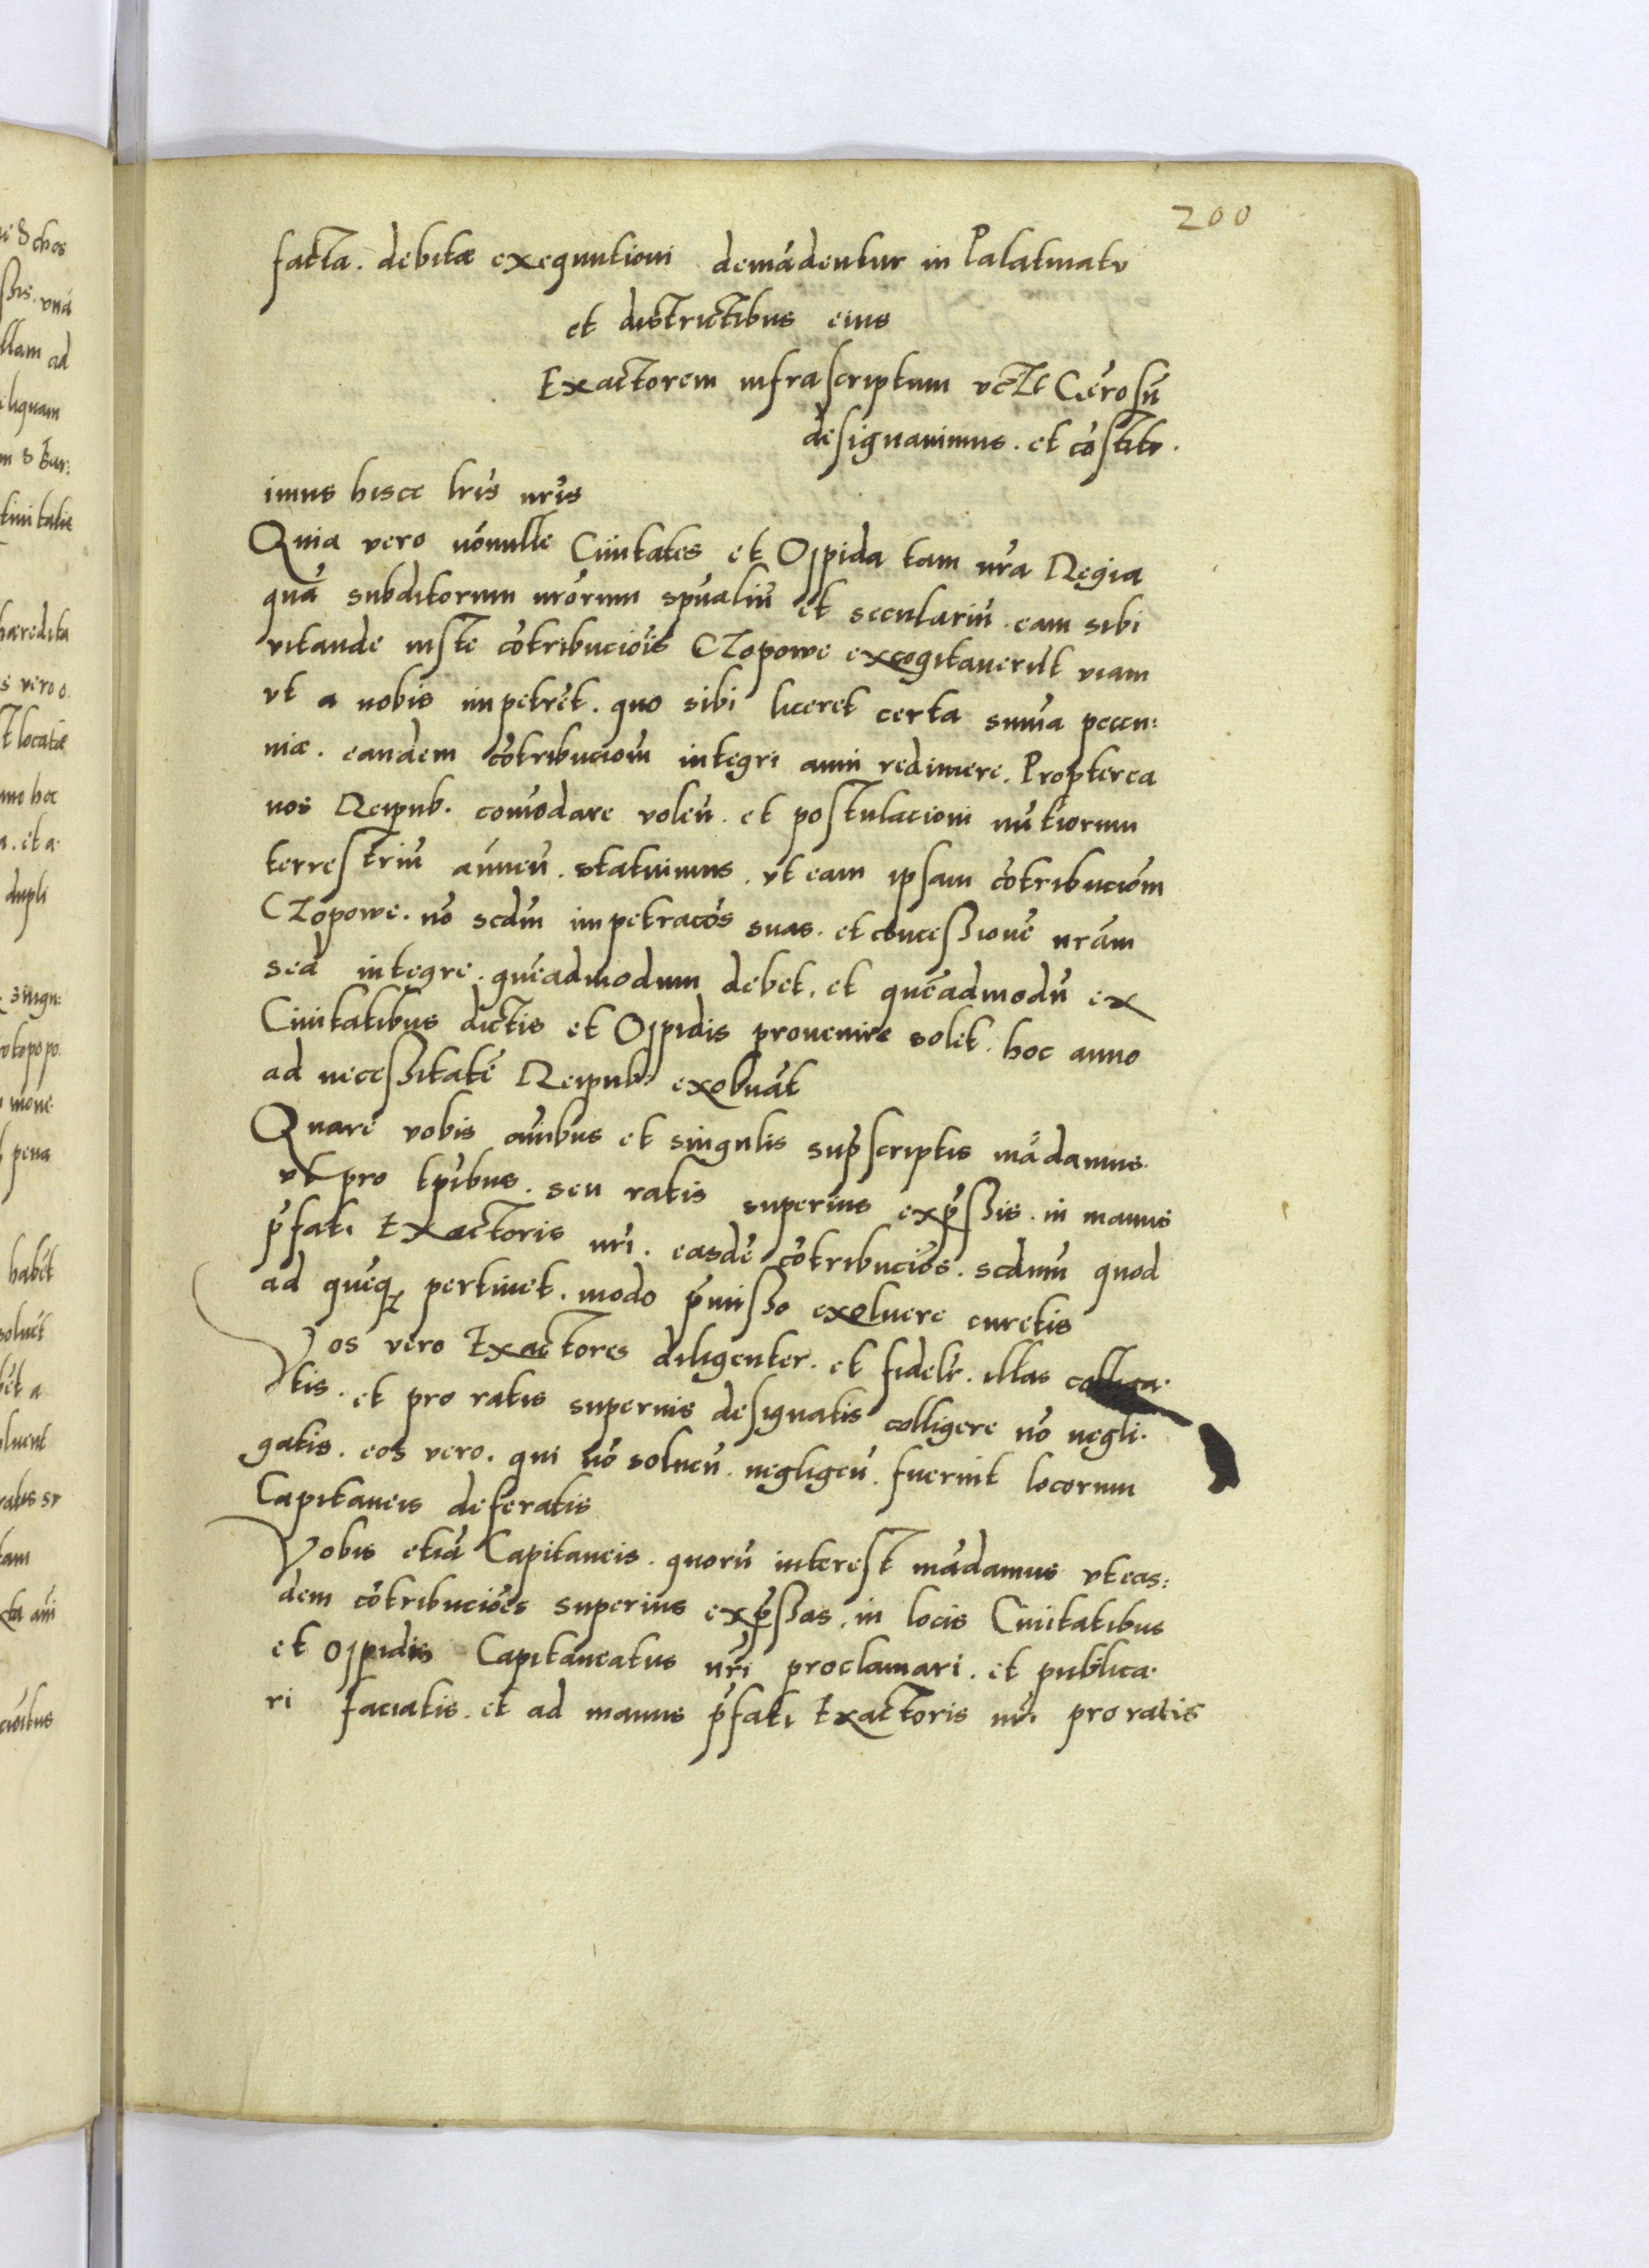 200
facta. debitæ exequutioni demādentur in Palatinato
et districtibus eius
Exactorem infrascriptum vcꝫte Gṅrosū
designauimus. et cōstitu.
imus hisce lrīs nrīs
Quia vero nōnulle Ciuitates et Oppida tam nrā Regia
quā subditorum nrōrum spūaliū et seculariū. eam sibi
vitande iuste cōtribuciōis Czopowe excogitauerūt viam
vt a nobis impetrēt. quo sibi liceret certa summa pecun:
niæ. eandem cōtribuciom̄ integri anni redimere. Propterea
nos Reipub. comōdare volen̄. et postulacioni nūtiorum
terrestriū annuen̄. statuimus. vt eam ipsam cōtribuciōm
Czopowe. nō scdm̄ impetracōs suas. et concessionē nrām
sed integre. quēadmodum debet. et quēadmodū ex
Ciuitatibus dictis et Oppidis prouenire solet. hoc anno
ad necessitatē Reipub: exoluāt
Quare vobis omībus et singulis suprscriptis mādamus.
vt pro tpībus. seu ratis superius exp̄ssis. in manus
p̄fati Exactoris nrī. easdē cōtribuciōs. scdum̄ quod
ad quēqꝫ pertinet. modo p̄misso exoluere curetis
Vos vero Exactores diligenter. et fidelr̄. illas colliga.
tis. et pro ratis superius designatis colligere nō negli.
gatis. eos vero. qui nō soluen̄. negligen̄. fuerint locorum
Capitaneis deferatis
Vobis etiā Capitaneis. quorū interest mādamus vt eas:
dem cōtribuciōes superius exp̄ssas. in locis Ciuitatibus
et oppidis Capitaneatus urī proclamari. et publica.
ri faciatis. et ad manus p̄fati Exactoris nrī. pro ratis